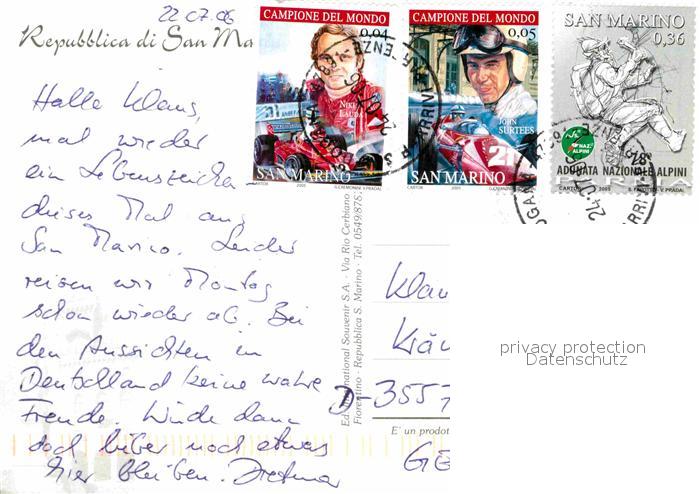 22.07.06
Repubblica di San Ma
Hallo Klaus,
mal wieder
ein Lebenszeichen
dieses Mal aus
San Marino. Leider
reisen wir Montag
schon wieder ab. Bei
den Aussichten in
Deutschland keine wahre
Freude. Würde dann
doch lieber noch etwas
hier bleiben. Dietmar
CAMPIONE DEL MONDO
0,04
NIKI
LAUDA
SAN MARINO
CARTOR 2005 G.CREMONINI-V.PRADAL
CAMPIONE DEL MONDO
0,05
JOHN
SURTEES
2
SAN MARINO
CARTOR 2005
SAN MARINO
0,36
NAZ.
ALPINI
78ª
ADUNATA NAZIONALE ALPINI
CARTOR 2005
Ed. International Souvenir S.A. - Via Rio Cerbiano
Fiorentino - Repubblica S. Marino - Tel. 0549/878
Klau
Kräu
D-3557
E' un prodot
GE
privacy protection
Datenschutz